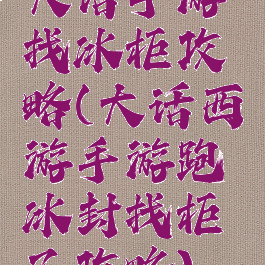 大话手游
找冰柜攻
略(大话西
游手游跑
冰封找柜
子攻略)